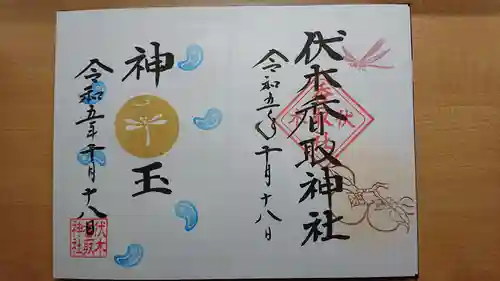 伏木香取神社
令和五年十月十八日
神玉
令和五年十月十八
伏木
香取
神社